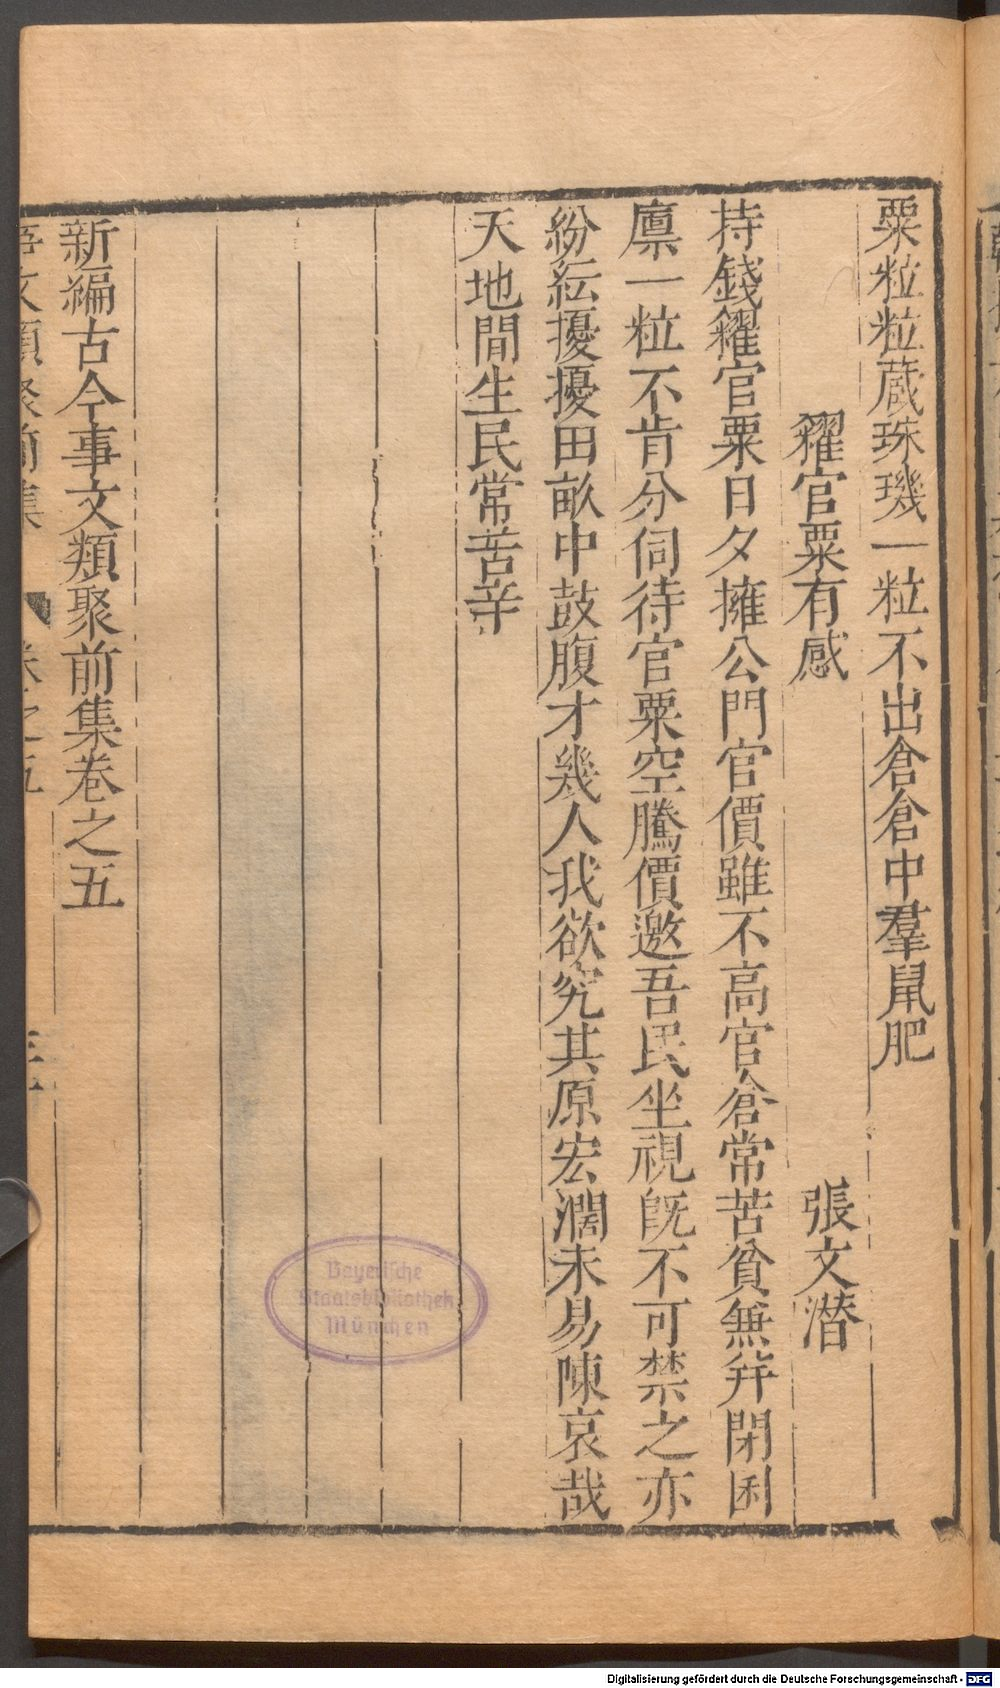 粟粒粒蔵珠璣一粒不出倉倉中羣鼠肥
糴官粟有感
張文潜
持錢糴官粟日夕擁公門官價雖不高官倉常苦貧無幷閉囷
廪一粒不肯分伺待官粟空騰價邀吾民坐視旣不可禁之亦
紛紜擾擾田畝中鼓腹才幾人我欲究其原宏濶未易陳哀哉
天地間生民常苦辛
新編古今事文類聚前集巻之五
事文類聚前集
巻之五
Bayerische
Staatsbibliothek
München
Digitalisierung gefördert durch die Deutsche Forschungsgemeinschaft - DFG